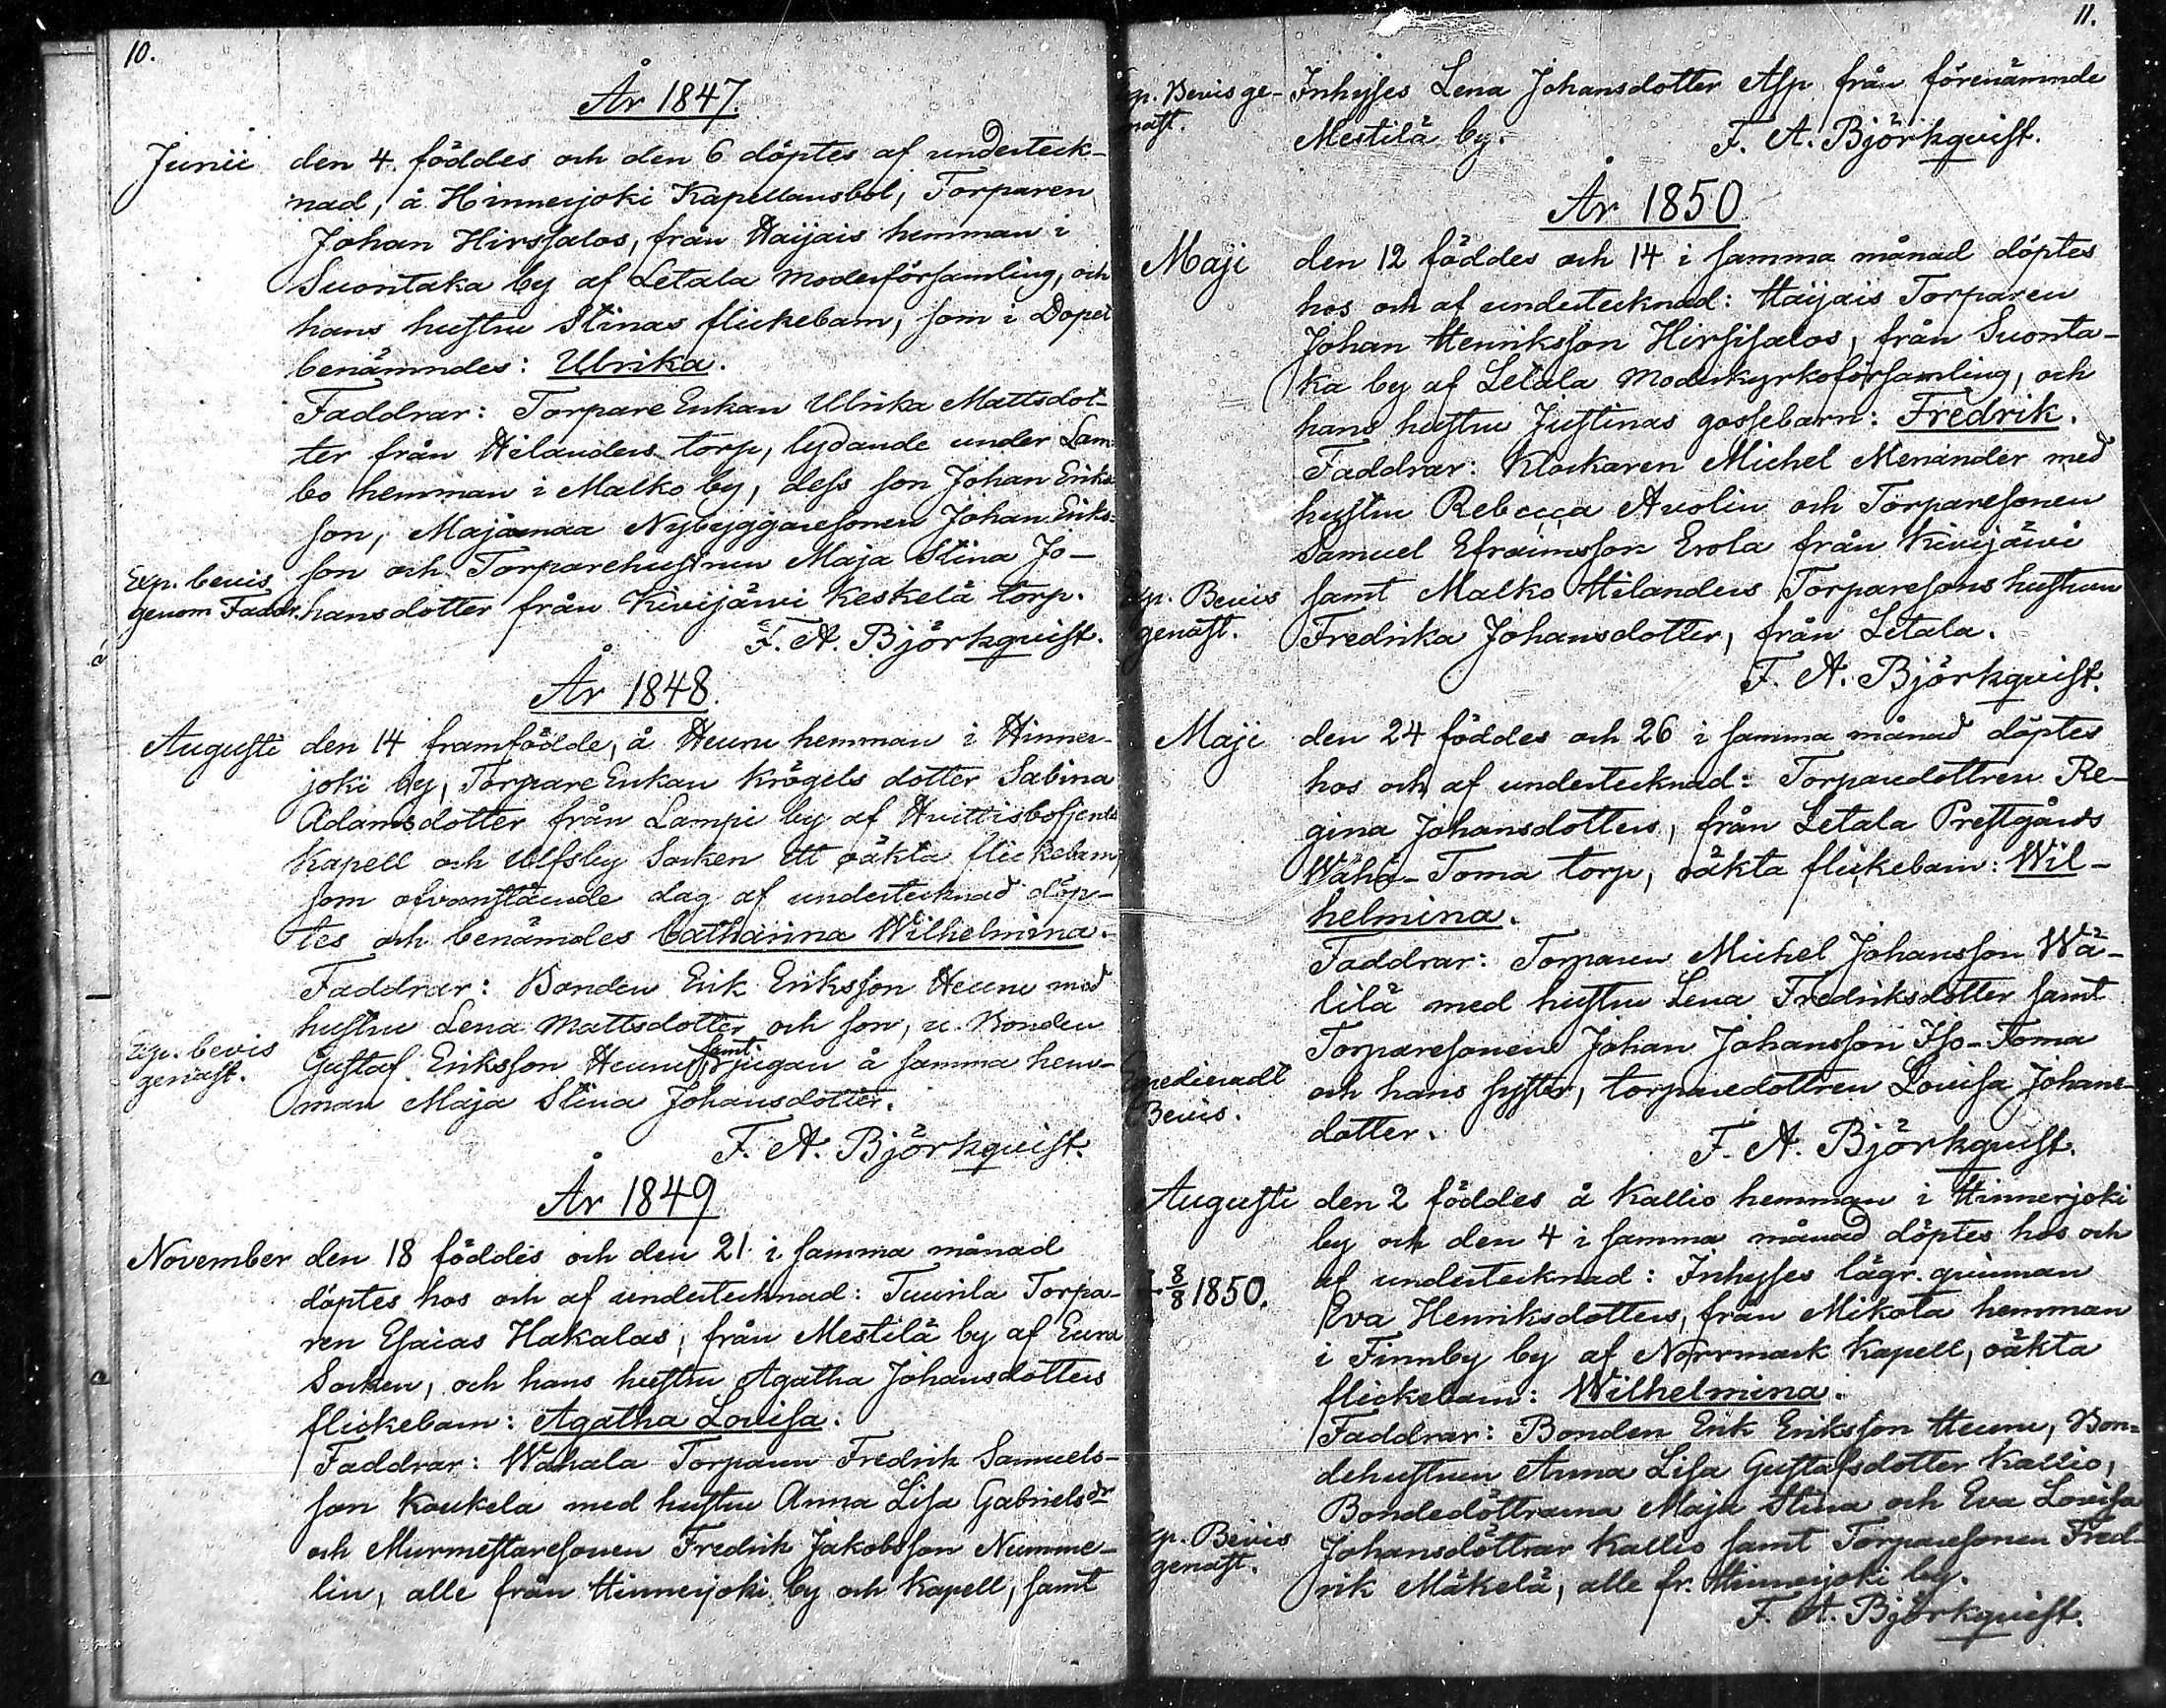 10.
År 1847.
Junii den 4. föddes och den 6 döptes af underteck-
nad, å Hinnerjoki Kapellansbol, Torparen
Johan Hirssalos, från Haijais hemman i
Suontaka by af Letala Moderförsamling, och
hans hustru Stinas flickebarn, som i Dopet
benämndes: Ulrika.
Faddrar: Torpare Enkan Ulrika Mattsdot-
ter från Hilanders torp, lydande under Lam-
bo hemman i Malko by, dess son Johan Eriks-
son, Majamaa Nybyggaresonen Johan Eriks-
son och Torparehustrun Maja Stina Jo-
Exp. bevis
genom Faddr. hansdotter från Kivijärvi Keskelä torp.
F. A. Björkqvist.
År 1848.
Augusti den 14 framfödde, å Heuru hemman i Hinner-
joki by, Torpare Enkan Krögels dotter Sabina
Adamsdotter från Lampi by af Hvittisbofjerds
Kapell och Ulfsby Socken ett oäkta flickebarn,
som ofvanstående dag af undertecknad döp-
tes och benämdes Catharina Wilhelmina.
Faddrar: Bonden Erik Eriksson Heuru med
hustru Lena Mattsdotter och son, u. Bonden
Exp. bevis
genast.
Gustaf Eriksson Heuru samt Pjugan å samma hem-
man Maja Stina Johansdotter.
F. A. Björkqvist.
År 1849
November den 18 föddes och den 21 i samma månad
döptes hos och af undertecknad: Tuurila Torpa-
ren Esaias Hakalas, från Mestilä by af Eura
Socken, och hans hustru Agatha Johansdotters
flickebarn: Agatha Lovisa.
Faddrar: Wahala Torparen Fredrik Samuels-
son Koukela med hustru Anna Lisa Gabrielsdr
och Murmestaresonen Fredrik Jakobsson Numme-
lin, alle från Hinnerjoki by och Kapell, samt
11.
Exp. Bevis ge-
nast.
Inhyses Lena Johansdotter Asp från förenämnde
Mestilä by. F. A. Björkqvist.
År 1850
Maji den 12 föddes och 14 i samma månad döptes
hos och af undertecknad: Haijais Torparen
Johan Henriksson Hirsisalos, från Suonta-
ka by af Letala Moderkyrkoförsamling, och
hans hustru Justinas gossebarn: Fredrik.
Faddrar: Klockaren Michel Menander med
hustru Rebecca Avolin och Torparesonen
Samuel Efraimsson Erola från Kivijärvi
Exp. Bevis
genast.
samt Malko Hilanders Torparesons hustrun
Fredrika Johansdotter, från Letala.
F. A. Björkqvist.
Maji den 24 föddes och 26 i samma månad döptes
hos och af undertecknad: Torparedottren Re-
gina Johansdotters, från Letala Prestgårds
Wähä-Toma torp, oäkta flickebarn: Wil-
helmina.
Faddrar: Torparen Michel Johansson Wä-
lilä med hustru Lena Fredriksdotter samt
Torparesonen Johan Johansson Iso-Toma
Expedieradt
Bevis.
och hans syster, torparedottren Lovisa Johans-
dotter. F. A. Björkqvist.
Augusti den 2 föddes å Kallio hemman i Hinnerjoki
by och den 4 i samma månad döptes hos och
† 8/8 1850. af undertecknad: Inhyses lägr. quinnan
Eva Henriksdotters, från Mikola hemman
i Finnby by af Norrmark Kapell, oäkta
flickebarn: Wilhelmina.
Faddrar: Bonden Erik Eriksson Heuru, Bon-
dehustrun Anna Lisa Gustafsdotter Kallio,
Bondedöttrarna Maja Stina och Eva Lovisa
Exp. Bevis
genast.
Johansdöttrar Kallio samt Torparesonen Fred-
rik Mäkelä, alle fr. Hinnerjoki by.
F. A. Björkqvist.